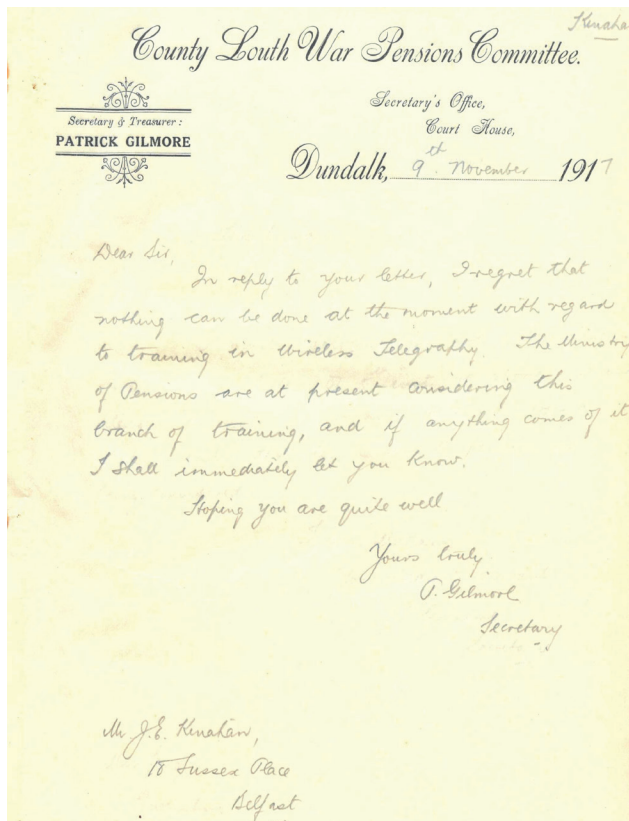 Kinaha
County Louth War Pensions Committee.
Secretary & Treasurer:
PATRICK GILMORE
Secretary's Office,
Court House,
Dundalk, 9th November 1917
Dear Sir,
In reply to your letter, I regret that
nothing can be done at the moment with regard
to training in Wireless Telegraphy. The Ministry
of Pensions are at present considering this
branch of training, and if anything comes of it
I shall immediately let you know.
Hoping you are quite well
Yours truly
P. Gilmore
Secretary
Mr J.E. Kinahan,
18 Sussex Place
Belfast